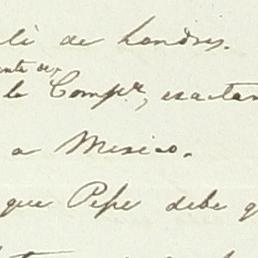 de Londres.
la Compª, exactam
a Mexico.
que Pepe debe q